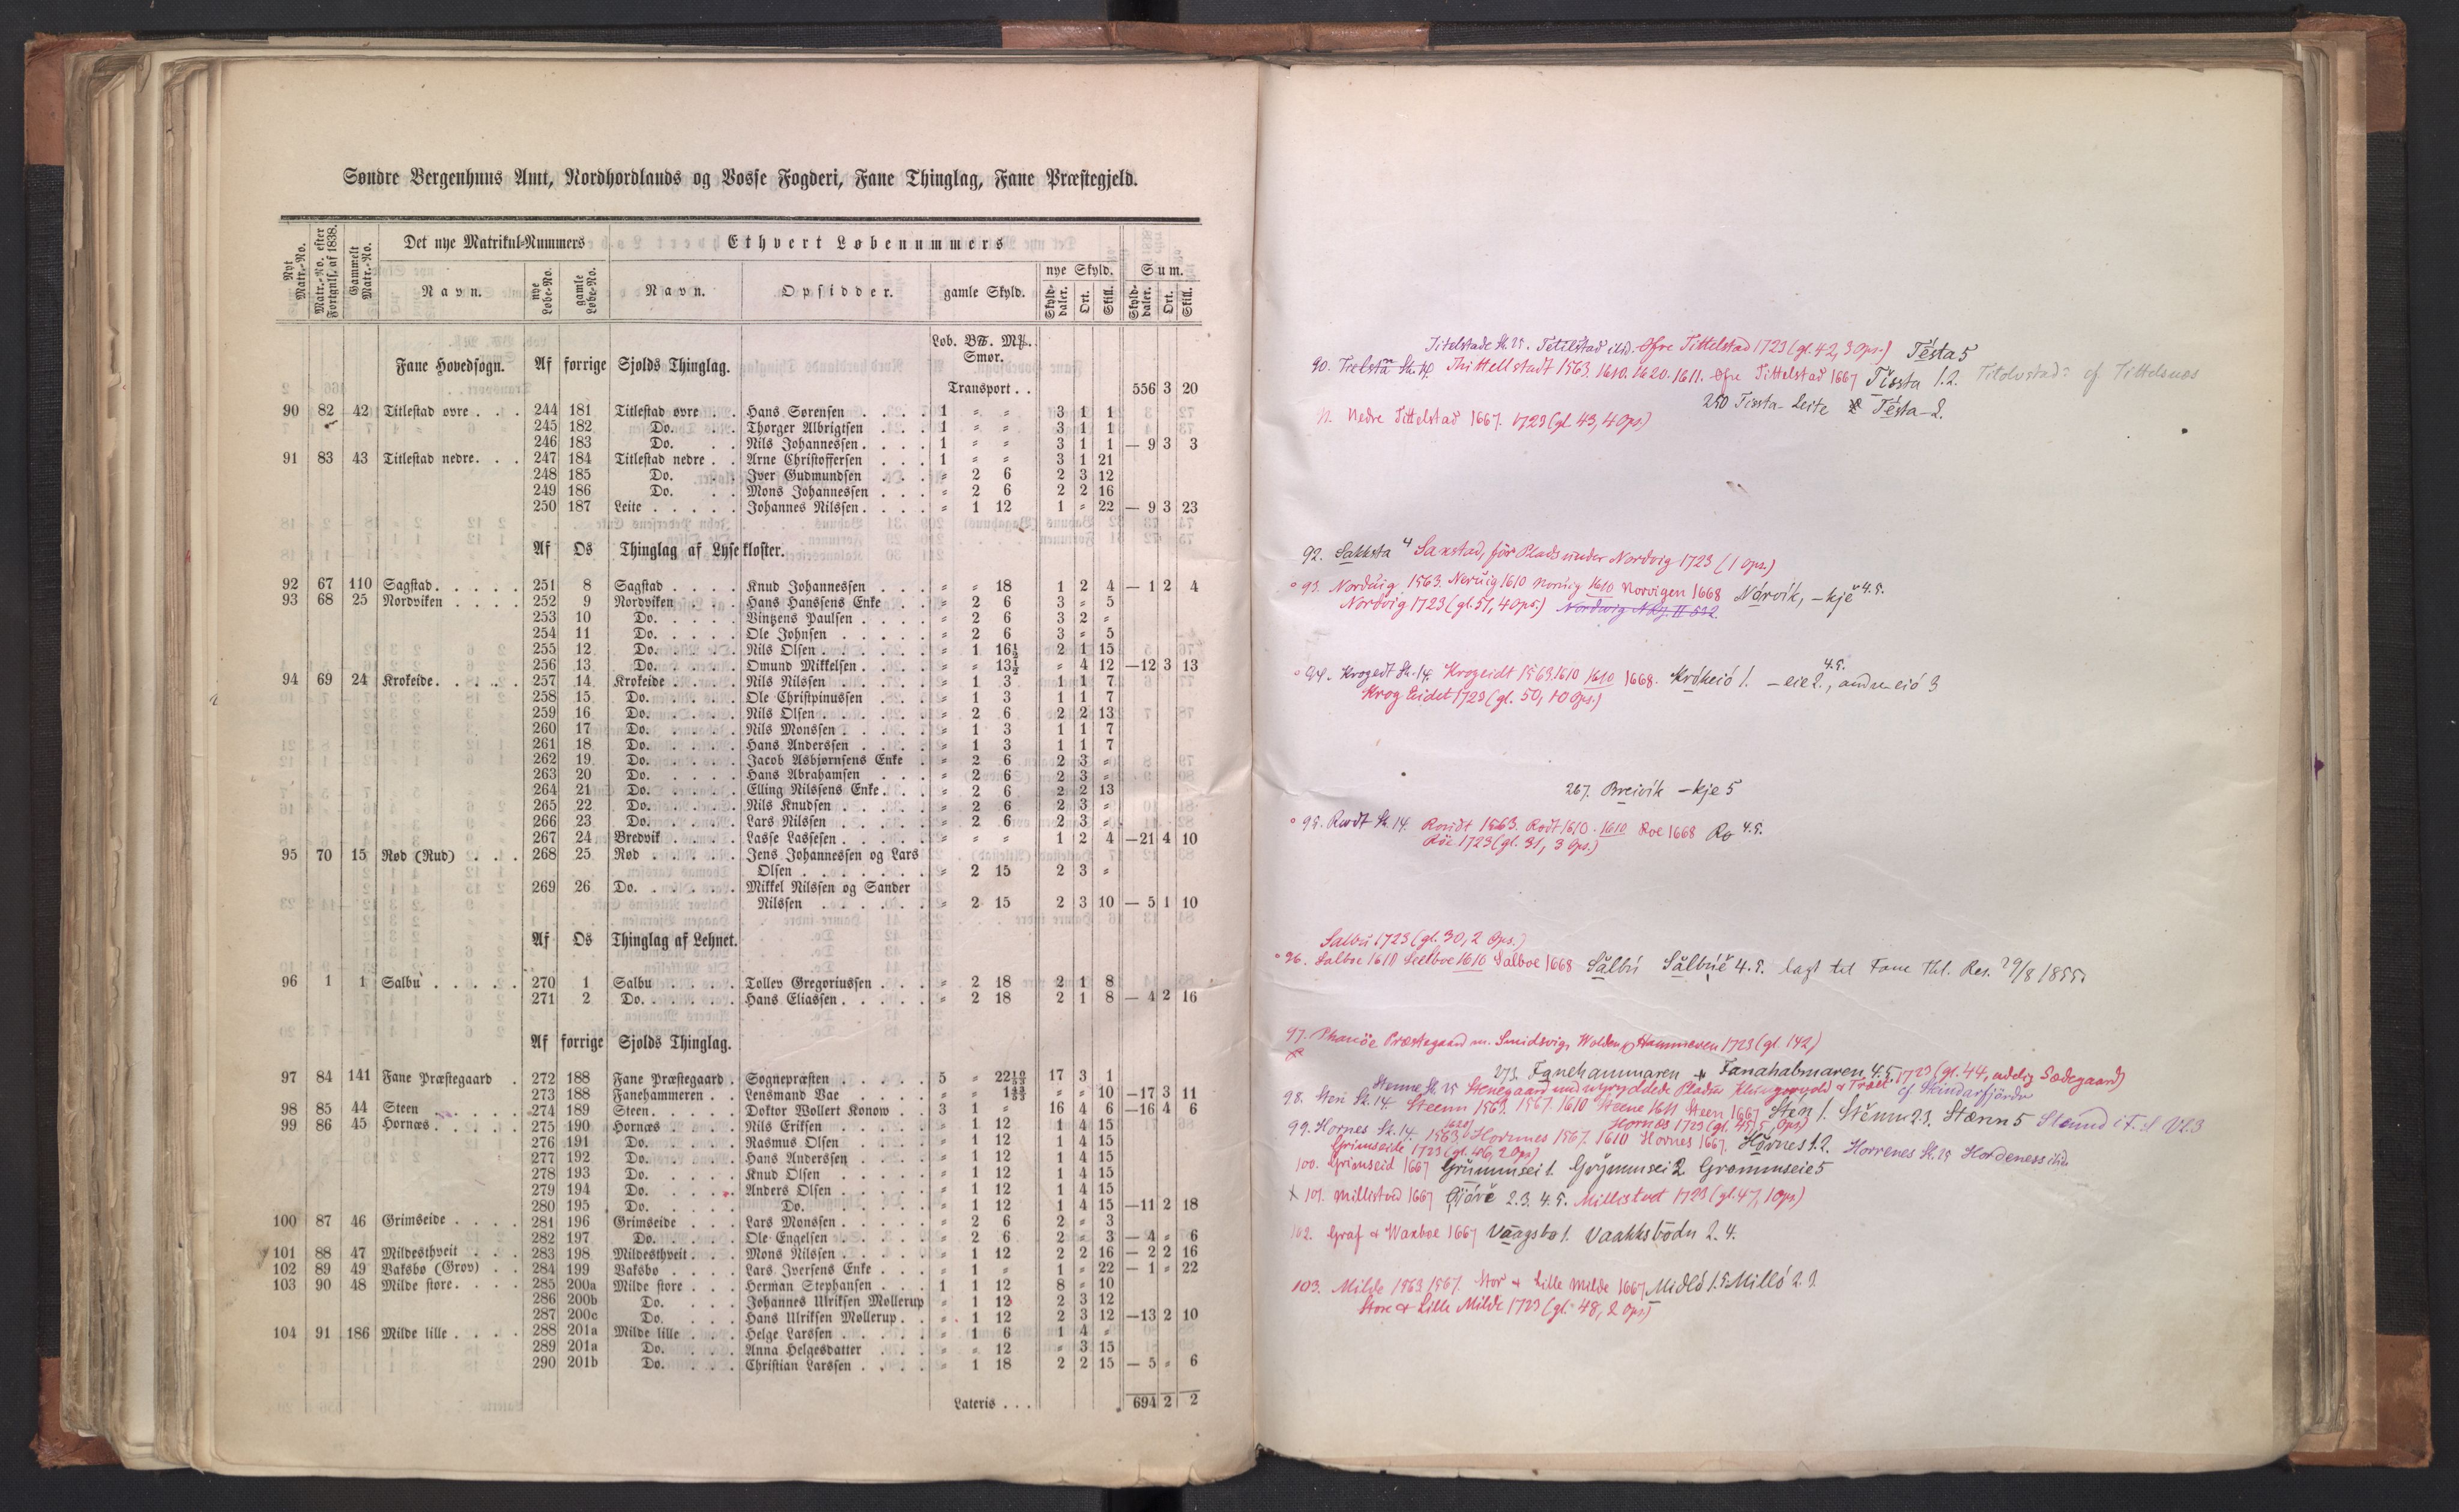 Søndre Bergenhuus Amt, Nordhordlands og Vosse Fogderi, Fane Thinglag, Fane Præstegjeld.
Nyt Matr.-No. Matr.-No. efter Fortgnlf. af 1838. Gammelt Matr.-No. Det nye Matrikul-Nummers Ethvert Løbenummers
Navn. nye Løbe-No. gamle Løbe-No. Navn. Opsidder. gamle Skyld. nye Skyld. Sum.
Skyld-daler. Ort. Skill. Skyld-daler. Ort. Skill.
Løb. B℔. M℔.
Fane Hovedsogn. Af forrige Sjolds Thinglag. Smør.
Transport . . 556 3 20
90 82 42 Titlestad øvre . . . 244 181 Titlestad øvre . . Hans Sørensen . . . . 1 " " 3 1 1
245 182 Do. . . Thorger Albrigtsen . . . 1 " " 3 1 1
246 183 Do. . . Nils Johannessen . . . . 1 " " 3 1 1 — 9 3 3
91 83 43 Titlestad nedre. . . 247 184 Titlestad nedre . . Arne Christoffersen . . . 1 " " 3 1 21
248 185 Do. . . Iver Gudmundsen . . . " 2 6 2 3 12
249 186 Do. . . Mons Johannessen . . . " 2 6 2 2 16
250 187 Leite . . . . . Johannes Nilssen . . . . " 1 12 1 " 22 — 9 3 23
Af Os Thinglag af Lysekloster.
92 67 110 Sagstad . . . . . 251 8 Sagstad . . . . Knud Johannessen . . . " " 18 1 2 4 — 1 2 4
93 68 25 Nordviken . . . . 252 9 Nordviken . . . Hans Hanssens Enke . . " 2 6 3 " 5
253 10 Do. . . . . Vintzens Paulsen . . . . " 2 6 3 2 "
254 11 Do. . . . . Ole Johnsen . . . . . " 2 6 3 " 5
255 12 Do. . . . . Nils Olsen . . . . . . " 1 16½ 2 1 15
256 13 Do. . . . . Omund Mikkelsen . . . . " " 13½ " 4 12 —12 3 13
94 69 24 Krokeide . . . . . 257 14 Krokeide . . . . Nils Nilssen . . . . . " 1 3 1 1 7
258 15 Do. . . . . Ole Christpinussen . . . " 1 3 1 1 7
259 16 Do. . . . . Nils Olsen . . . . . . " 2 6 2 2 13
260 17 Do. . . . . Nils Monssen . . . . . " 1 3 1 1 7
261 18 Do. . . . . Hans Anderssen . . . . " 1 3 1 1 7
262 19 Do. . . . . Jacob Asbjørnsens Enke . " 2 6 2 3 "
263 20 Do. . . . . Hans Abrahamsen . . . " 2 6 2 3 "
264 21 Do. . . . . Elling Nilssens Enke . . . " 2 6 2 2 13
265 22 Do. . . . . Nils Knudsen . . . . . " 2 6 2 3 "
266 23 Do. . . . . Lars Nilssen . . . . . " 2 6 2 3 "
267 24 Bredvik . . . . Lasse Lassesen . . . . . " " " 1 2 4 —21 4 10
95 70 15 Rød (Rud) . . . 268 25 Rød . . . . . . Jens Johannessen og Lars
Olsen . . . . . . . " 2 15 2 3 "
269 26 Do. . . . . . Mikkel Nilssen og Sander
Nilssen . . . . . . " 2 15 2 3 10 — 5 1 10
Af Os Thinglag af Lehnet.
96 1 1 Salbu . . . . . 270 1 Salbu . . . . . Tollev Gregoriussen . . . " 2 18 2 1 8
271 2 Do. . . . . . Hans Eliassen . . . . . " 2 18 2 1 8 — 4 2 16
Af forrige Sjolds Thinglag.
97 84 141 Fane Præstegaard . 272 188 Fane Præstegaard . Sognepræsten . . . . . 5 " 22 17 3 1
273 188 Fanehammeren . . Lensmand Vae . . . . " " 1 " " 10 —17 3 11
98 85 44 Steen . . . . . 274 189 Steen . . . . . Doktor Wollert Konow . . 3 1 " 16 4 6 —16 4 6
99 86 45 Hornæs . . . . . 275 190 Hornæs . . . . Nils Eriksen . . . . . " 1 12 1 4 15
276 191 Do. . . . . Rasmus Olsen . . . . " 1 12 1 4 15
277 192 Do. . . . . Hans Anderssen . . . . " 1 12 1 4 15
278 193 Do. . . . . Knud Olsen . . . . . " 1 12 1 4 15
279 194 Do. . . . . Anders Olsen . . . . . " 1 12 1 4 15
280 195 Do. . . . . Do. . . . . . " 1 12 1 4 15 —11 2 18
100 87 46 Grimseide . . . . 281 196 Grimseide . . . Lars Monssen . . . . . " 2 6 2 " 3
282 197 Do. . . . . Ole Engelsen . . . . . " 2 6 2 " 3 — 4 " 6
101 88 47 Mildesthveit . . . 283 198 Mildesthveit . . . Mons Nilssen . . . . . " 1 12 2 2 16 — 2 2 16
102 89 49 Vaksbø (Grov) . . 284 199 Vaksbø . . . . Lars Iversens Enke . . . " 1 " 1 " 22 — 1 " 22
103 90 48 Milde store . . . . 285 200a Milde store . . . Herman Stephansen . . . 1 1 12 8 " 10
286 200b Do. . . . Johannes Ulriksen Møllerup " 1 12 2 3 12
287 200c Do. . . . Hans Ulriksen Møllerup . . " 1 12 2 3 12 —13 2 10
104 91 186 Milde lille . . . . 288 201a Milde lille . . . Helge Larssen . . . . . " 1 6 1 4 "
289 201a Do. . . . Anna Helgesdatter . . . " " 12 " 3 15
290 201b Do. . . . Christian Larssen . . . . " 1 18 2 2 15 — 5 " 6
Lateris . . . 694 2 2
Titelstade Sk. 25. Øfre Tittelstad 1723 (gl. 42, 3 Ops.) Testa 5
90. Thittellstadt 1563. 1610. 1620. 1611. Øfre Tittelstad 1667 Tissta 1.2. cf Tittelsnes
250 Tissta-Leite Testa-L.
N. Nedre Tittelstad 1667. 1723 (gl. 43, 4 Ops.)
92. Sakksta 4 Saxstad, før Plads under Nordvig 1723 (1 Ops.)
93. Norduig 1563. Neruig 1610 1610 Norvigen 1668 Nårvik, -kje 4.5.
Nordvig 1723 (gl. 51, 4 Ops.) Nordwig NRJ. II 532
94. Krogedt Sk. 14 Krogeidt 1563. 1610 1610 1668. Kråkeió 1. -eie 2., andre -eió 3 4.5.
Krog Eidet 1723 (gl. 50, 10 Ops.)
267. Breivik -kje 5
95. Rødt Sk. 14. 1563. Rødt 1610. 1610 Roe 1668 Rø 4.5.
Röe 1723 (gl. 31, 3 Ops.)
Salbu 1723 (gl. 30, 2 Ops.)
96. Salboe 1610 Selboe 1610 Salboe 1668 Sålbú 4.5. lagt til Fane Thl. Res. 29/8 1855.
97. Phanöe Præstegaard m. Smidsvig, Wolden, Hammeren 1723 (gl. 142)
273. Fanehammaren Fanahabmaren 4.5. 1723 (gl. 44, uddrig Sædegaard)
Stenne Sk. 25 Stenegaard
98. Sten Sk. 14. Steenn 1563. 1567. 1610 Steene 1611 Steen 1667 Sten 1. Stenn 2.3. Stænn 5
Hornæs 1723 (gl. 45, 5 Ops.)
99. Hornes Sk. 14. 1563 Hornnes 1567. 1610 Hornes 1667. Hårnes 1.2. Horrenes Sk. 25 Hordeness ibid.
Grimseide 1723 (gl. 46, 2 Ops.)
100. Grimseid 1667 Grimmsei 1. Grymmsei 2 Grommseie 5
101. Millistved 1667 2.3.4.5. Millistvet 1723 (gl. 47, 1 Ops.)
102. Graf & Waxboe 1667 Vaagsbø 1. Vaakksbödn 2.4.
103. Milde 1563 1567. Stor & Lille Milde 1667 Midló 1.5 Milló 2.3.
Store & Lille Milde 1723 (gl. 48, 2 Ops.)